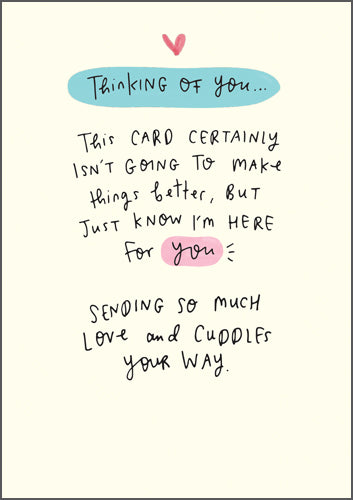 Thinking of you...
This CARD CERTAINLY
ISN'T GOING TO MAKe
things better, BUT
JUST KNOW I'm HERE
for you
SENDING SO MUCH
LOVe and CUDDLES
YOUR WAY.